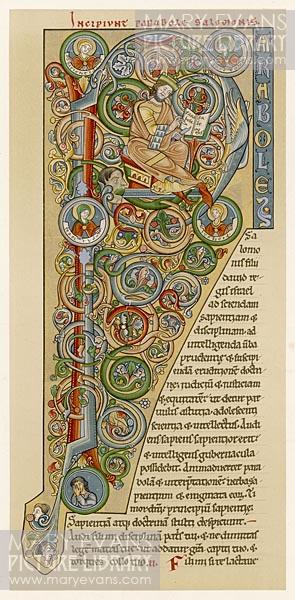 Incipiunt parabole Salomonis.
PARABOLES
Sa
lomo
nis filii
david re-
gis israel
ad sciendam
sapientiam &
disciplinam. ad
intelligenda uba
prudentie. & suscipi
endā eruditionē doctri
ne.
& equitatē. ut detur par
uulis astutia. adolescenti
scientia & intellectus. Audi
ens sapiens sapientior erit:
& intelligens gubernacula
possidebit. Animaduertet para
bolā & interpretationē. uerba sa
pientium & enigmata Ti
mor principiū sapientie.
Sapientiā atq; doctrinā stulti despiciunt.
Audi disciplinam tui. & ne dimittas
legē matris tue. ut addatur capiti tuo. &
torques collo tuo. ii. si te lactaue
MARY EVANS
PICTURE LIBRARY
www.maryevans.com